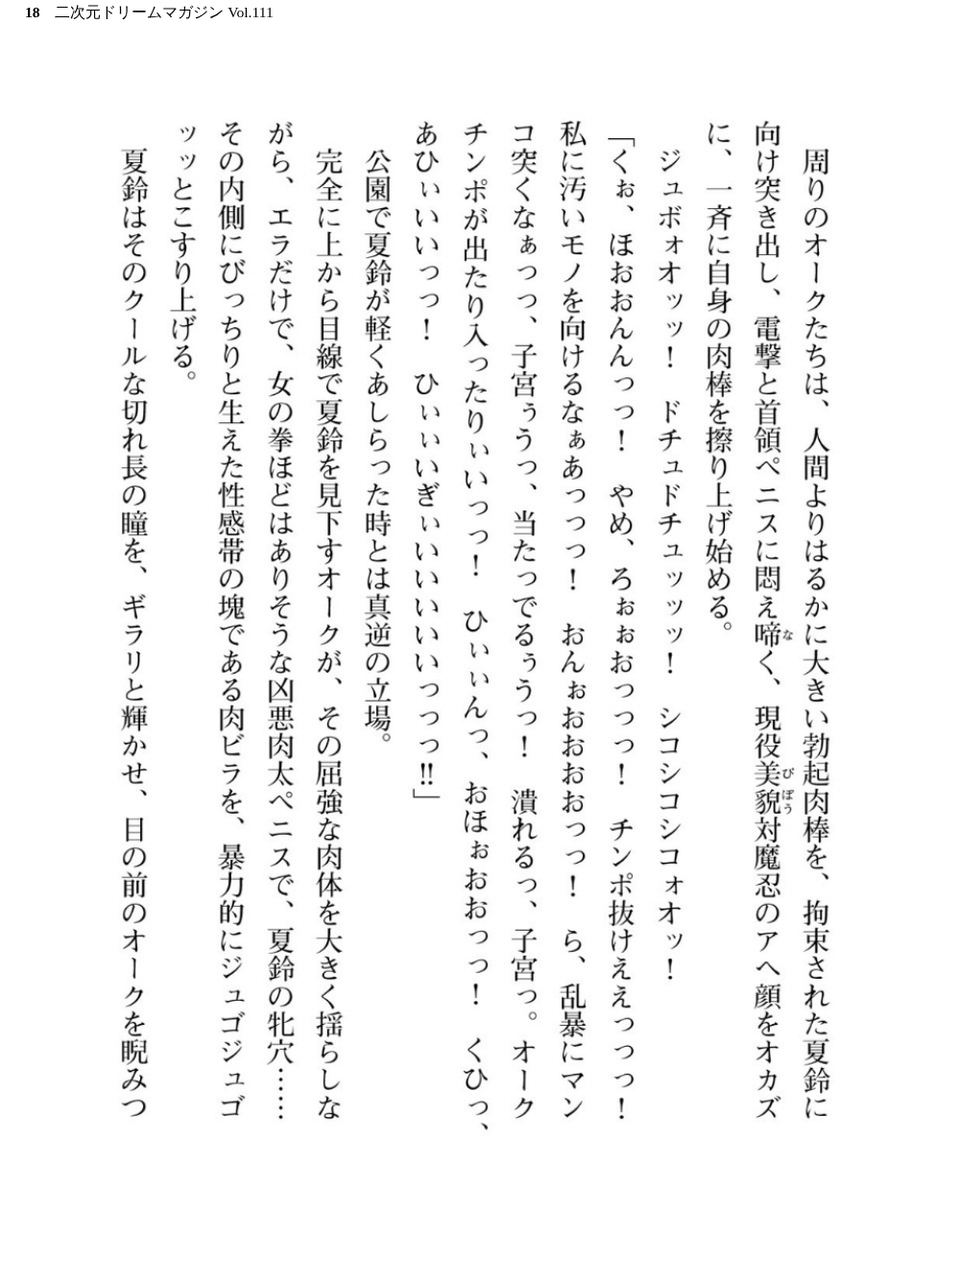 18 二次元ドリームマガジン Vol.111
周りのオークたちは、人間よりはるかに大きい勃起肉棒を、拘束された夏鈴に
向け突き出し、電撃と首領ペニスに悶え啼く、現役美貌対魔忍のアヘ顔をオカズ
に、一斉に自身の肉棒を擦り上げ始める。
ジュボォオッッ！　ドチュドチュッッッ！　シコシコシコシコォオッ！
「くぉ、ほおおんんっっ！　やめ、ろぉぉおっっっ！　チンポ抜けええっっっ！
私に汚いモノを向けるなぁあっっっ！　おんぉおおおおっっ！　ら、乱暴にマン
コ突くなぁっっ、子宮ぅうっ、当たっでるぅうっ！　潰れるっ、子宮っ。オーク
チンポが出たり入ったりぃいっっ！　ひぃぃんっ、おほぉおおっっ！　くひっ、
あひぃいいっっ！　ひぃぃいぎぃいいいいいっっっ!!」
公園で夏鈴が軽くあしらった時とは真逆の立場。
完全に上から目線で夏鈴を見下すオークが、その屈強な肉体を大きく揺らしな
がら、エラだけで、女の拳ほどはありそうな凶悪肉太ペニスで、夏鈴の牝穴……
その内側にびっちりと生えた性感帯の塊である肉ビラを、暴力的にジュゴジュゴ
ッッとこすり上げる。
夏鈴はそのクールな切れ長の瞳を、ギラリと輝かせ、目の前のオークを睨みつ